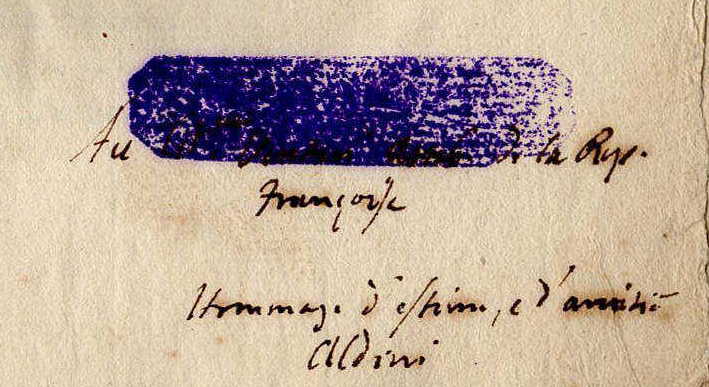 Au de la Rep.
Françoise
Hommage d'estime, e d'amitié
Aldini